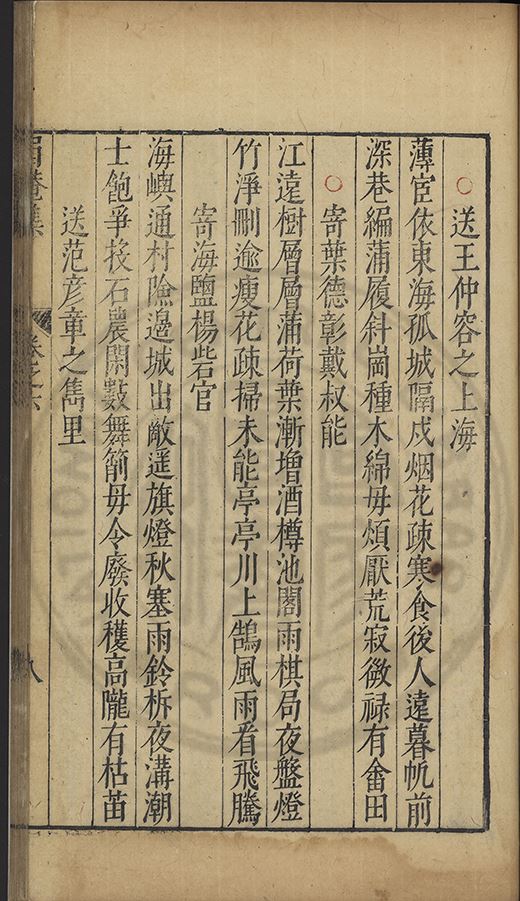 送王仲容之上海
薄宦依東海孤城隔戍烟花疎寒食後人遠暮帆前
深巷編蒲履斜崗種木綿毋煩厭荒寂微禄有畬田
寄葉德彰戴叔能
江遠樹層層蒲荷葉漸增酒樽池閣雨棋局夜盤燈
竹淨刪逾瘦花疎掃未能亭亭川上鵠風雨看飛騰
寄海鹽楊砦官
海嶼通村險邊城出敵遥旗燈秋塞雨鈴柝夜溝潮
士飽爭投石農閑數舞筩毋令廢收穫高隴有枯苗
送范彥章之雋里
卷之六
八